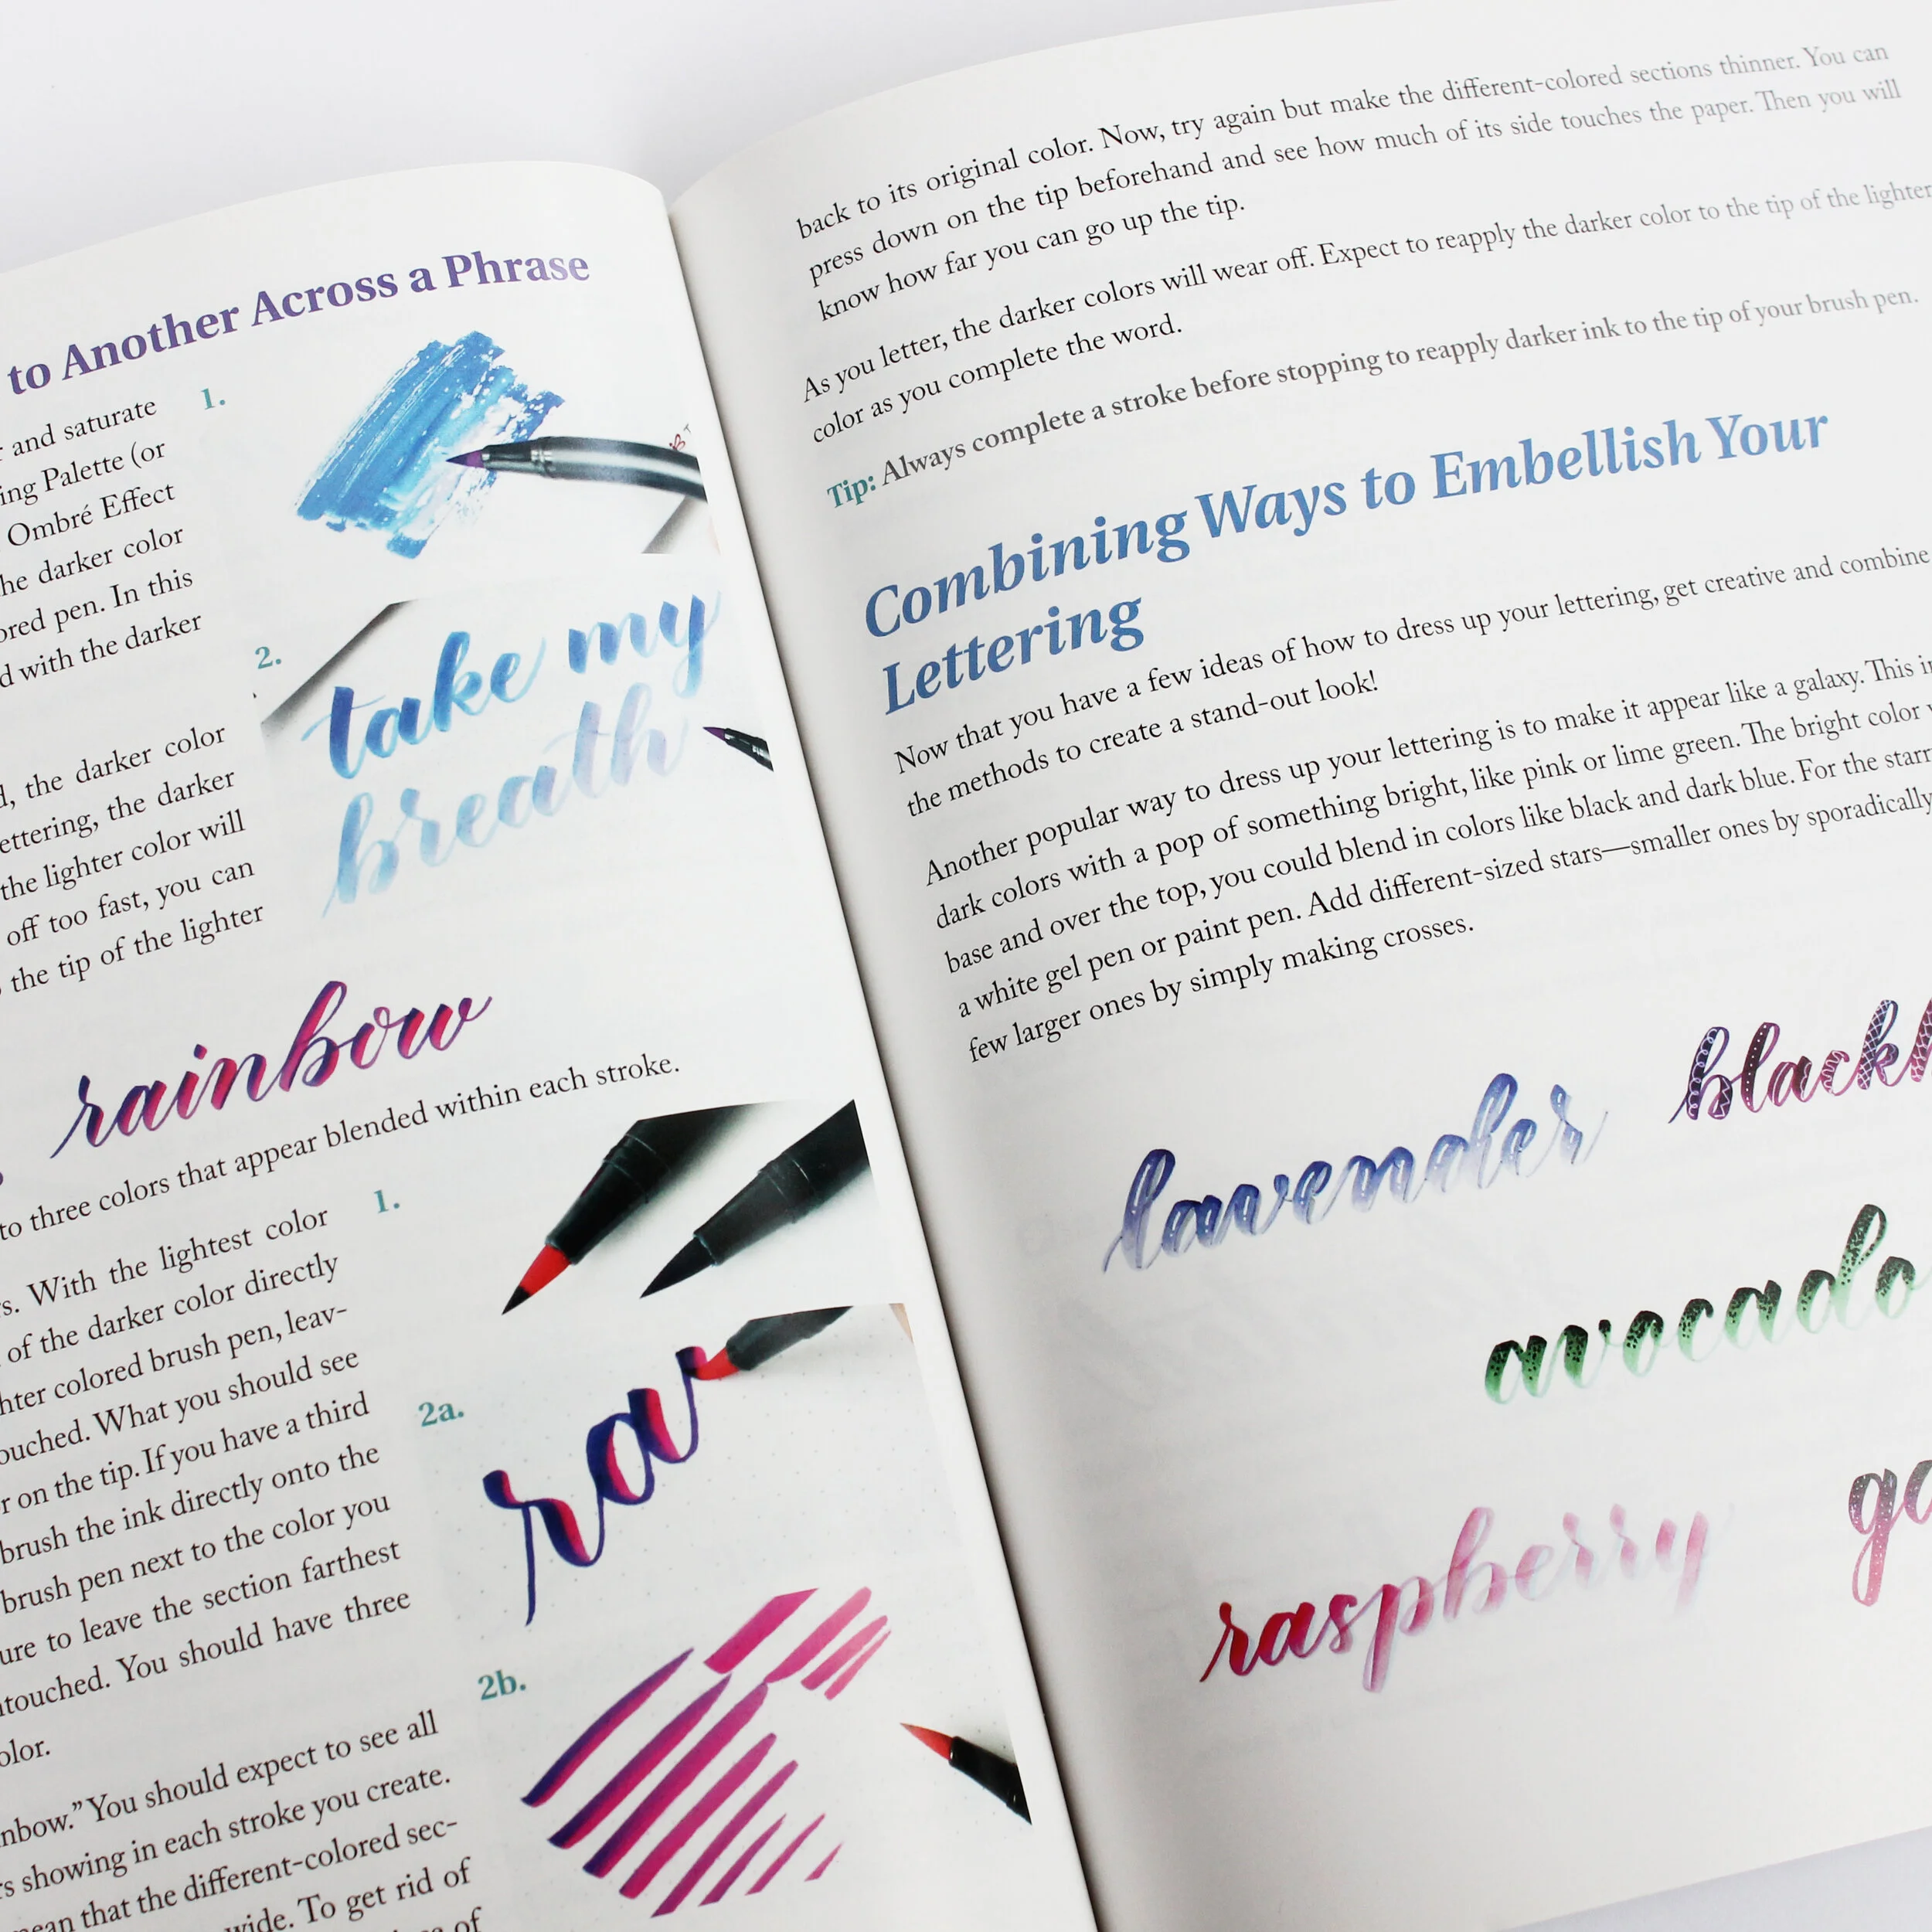 to Another Across a Phrase
1.
and saturate
ing Palette (or
Ombré Effect
he darker color
ored pen. In this
d with the darker
2.
take my
breath
, the darker color
ettering, the darker
the lighter color will
off too fast, you can
the tip of the lighter
rainbow
to three colors that appear blended within each stroke.
1.
s. With the lightest color
of the darker color directly
hter colored brush pen, leav-
ouched. What you should see
r on the tip. If you have a third
brush the ink directly onto the
brush pen next to the color you
ure to leave the section farthest
ntouched. You should have three
olor.
2a.
ra
2b.
nbow." You should expect to see all
rs showing in each stroke you create.
mean that the different-colored sec-
wide. To get rid of
of
back to its original color. Now, try again but make the different-colored sections thinner. You can
press down on the tip beforehand and see how much of its side touches the paper. Then you will
know how far you can go up the tip.
As you letter, the darker colors will wear off. Expect to reapply the darker color to the tip of the lighter
color as you complete the word.
Tip: Always complete a stroke before stopping to reapply darker ink to the tip of your brush pen.
Combining Ways to Embellish Your
Lettering
Now that you have a few ideas of how to dress up your lettering, get creative and combine
the methods to create a stand-out look!
Another popular way to dress up your lettering is to make it appear like a galaxy. This in
dark colors with a pop of something bright, like pink or lime green. The bright color
base and over the top, you could blend in colors like black and dark blue. For the starr
a white gel pen or paint pen. Add different-sized stars—smaller ones by sporadically
few larger ones by simply making crosses.
black
lavender
avocado
ga
raspberry